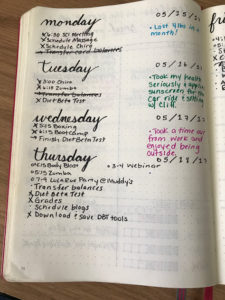 monday 05/25/21
x 10:30 SCI Meeting
x Schedule Massage
x Schedule Chiro
x Transfer card balances
• Lost 4 lbs in a month!
tuesday 05/26/21
x 3:00 Chiro
x 6:15 Zumba
x Transfer balances
x Diet Beta Test
• Took my health
seriously & applied
sunscreen for the
car ride & sitting
w/
wednesday 05/27/21
x 5:25 Boxing
x 6:15 Boot Camp
• Finish Diet Beta Test
• Took a time out
from work and
enjoyed being
outside.
thursday 05/28/21
Body Blast
o 3-4 Webinar
o 5:15 Zumba
o 7-9 LulaRoe Party @ Muddy's
• Transfer balances
x Diet Beta Test
x Grades
• Schedule blogs
x Download & save DBT tools